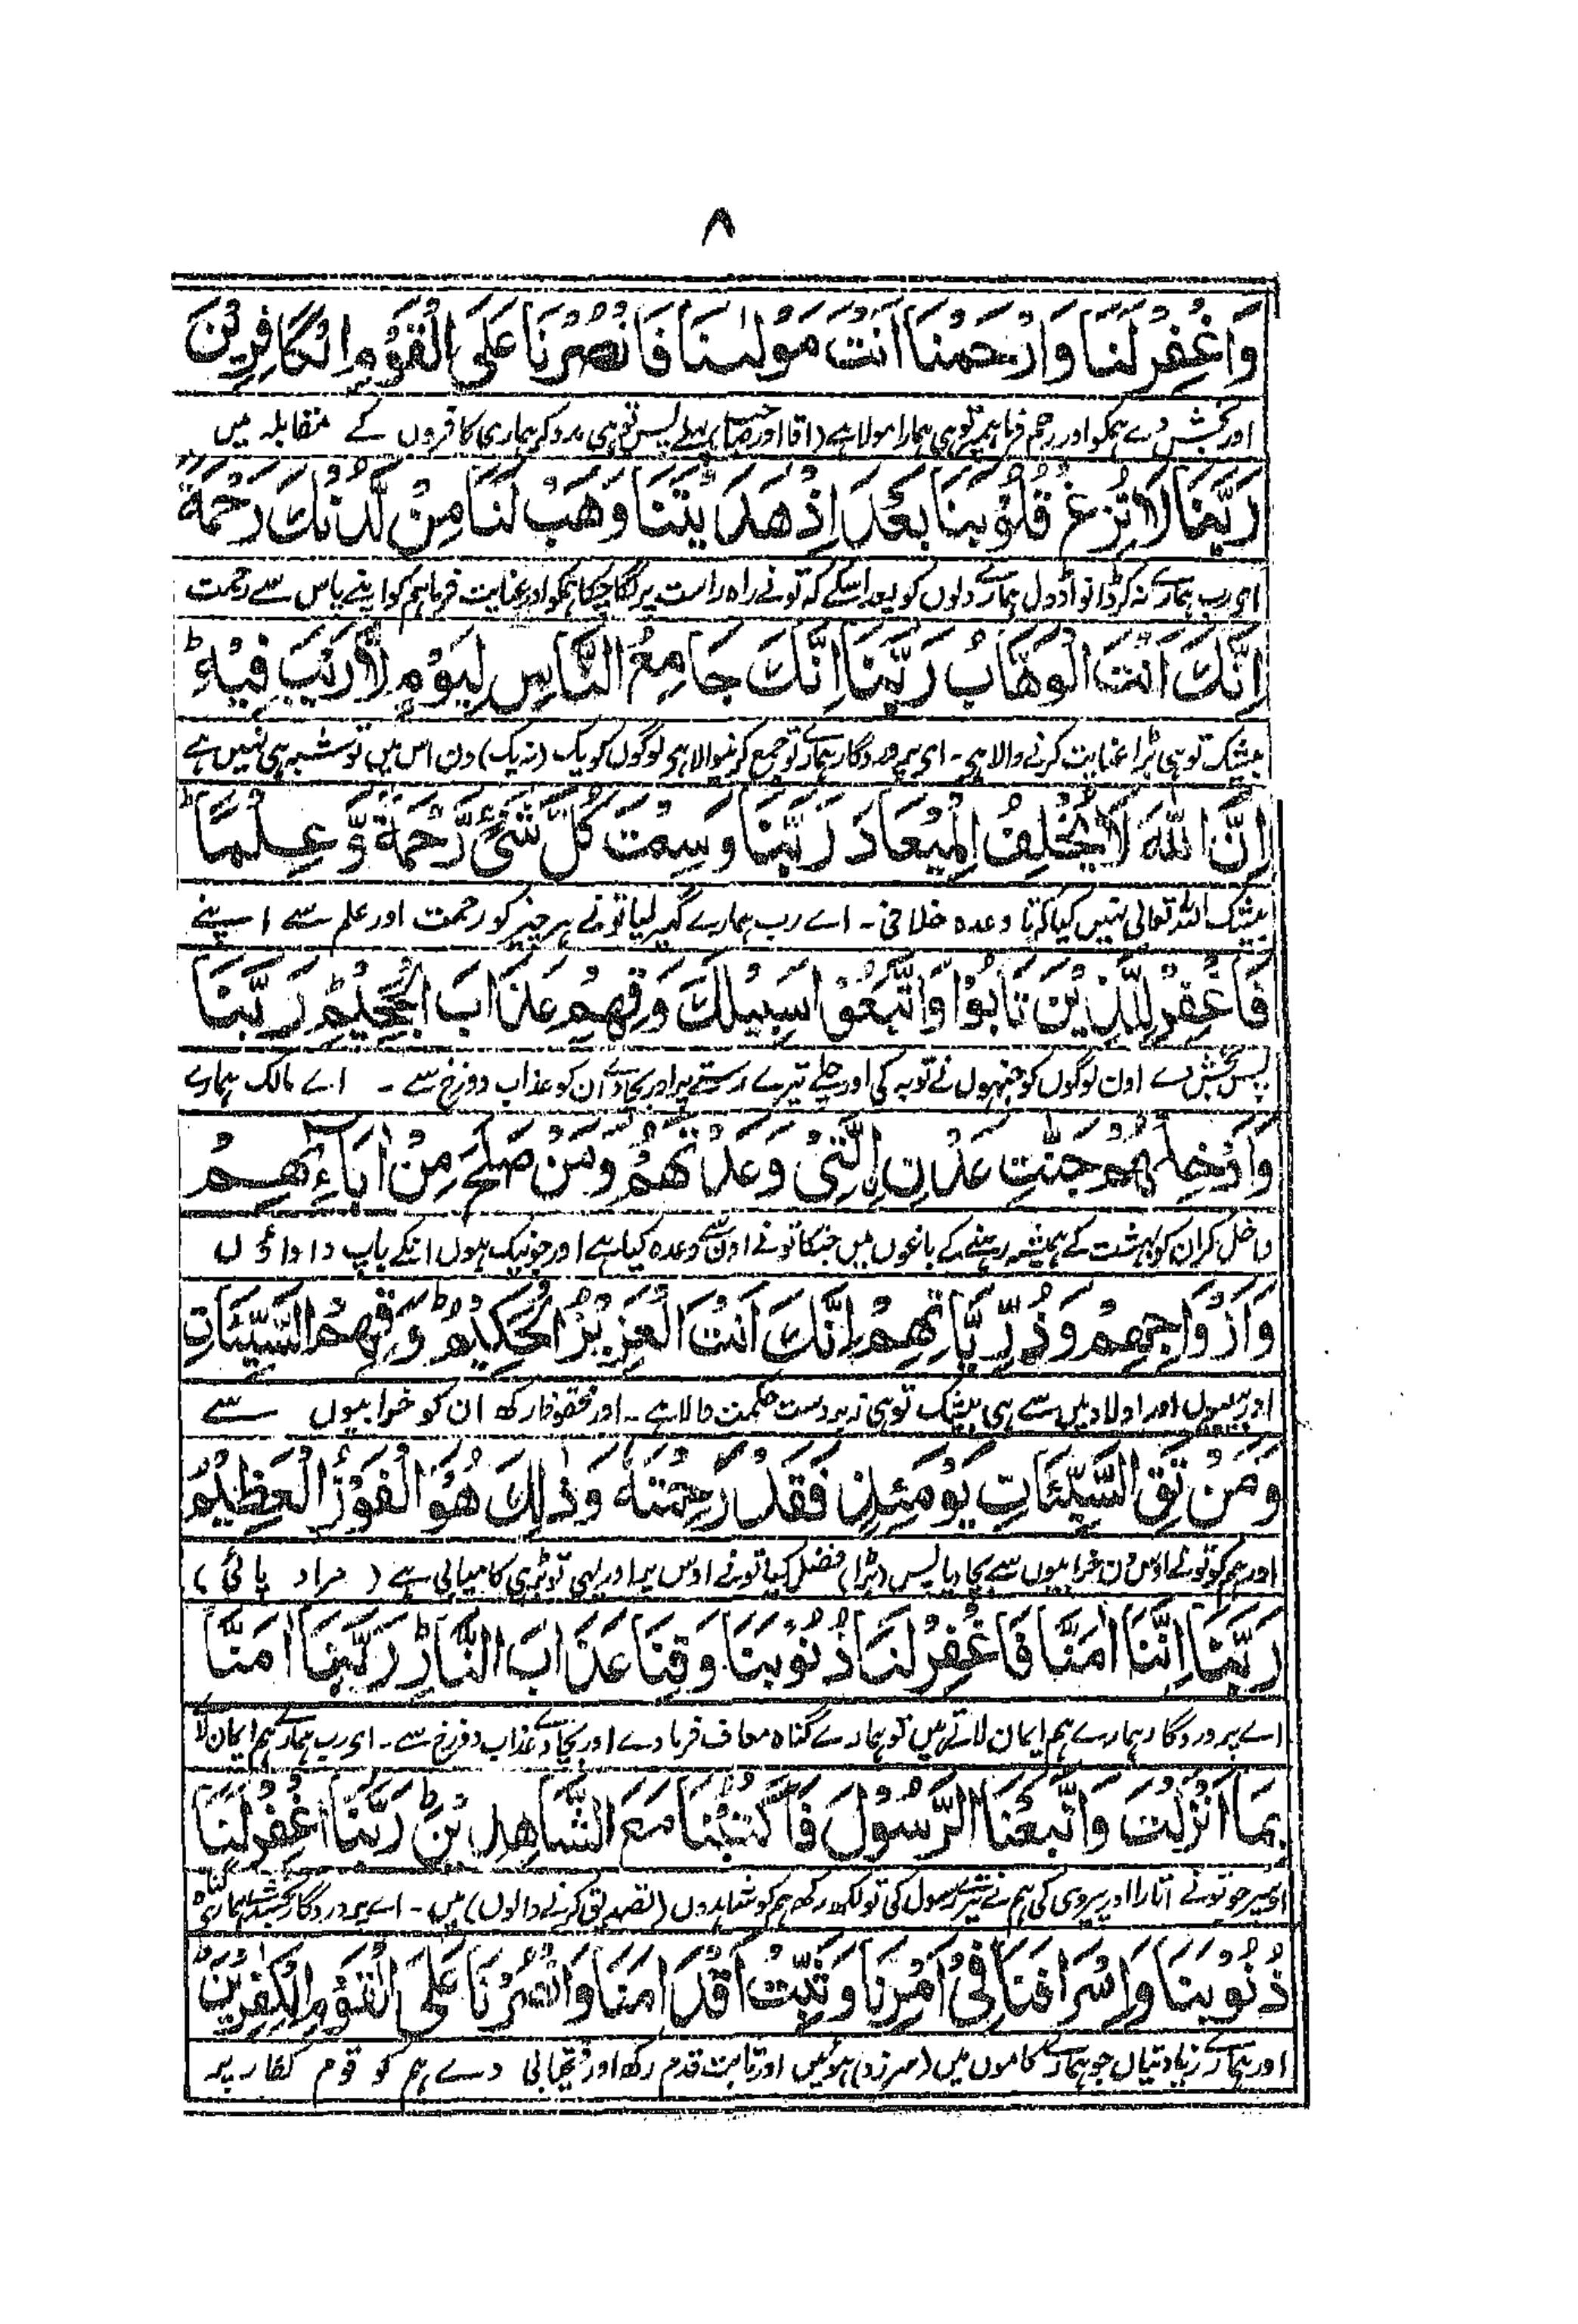 ۸
وَاغْفِرْ لَنَا وَارْحَمْنَا اَنْتَ مَوْلٰىنَا فَانْصُرْنَا عَلَى الْقَوْمِ الْكَافِرِيْنَ
اور بخش دے ہمکو اور رحم فرما ہمپر تو ہی ہمارا مولا ہے (آقا اور صاحب) پس تو ہی مدد کر ہماری کافروں کے مقابلہ میں
رَبَّنَا لَا تُزِغْ قُلُوْبَنَا بَعْدَ اِذْ هَدَيْتَنَا وَهَبْ لَنَا مِنْ لَّدُنْكَ رَحْمَةً
اى رب ہمارے نہ کر ڈانواڈول ہمارے دلوں کو بعد اسکے کہ تونے راہ راست پر لگا چکا ہمکو اور عنایت فرما ہم کو اپنے پاس سے رحمت
اِنَّكَ اَنْتَ الْوَهَّابُ رَبَّنَا اِنَّكَ جَامِعُ النَّاسِ لِيَوْمٍ لَّا رَيْبَ فِيْهِ ؕ
بیشک تو ہی بڑا عنایت کرنے والا ہی ۔ اى پروردگار ہمارے تو جمع کرنیوالا ہى لوگوں کو یک (نہ یک) دن اس میں تو شبہ ہی نہیں ہے
اِنَّ اللّٰهَ لَا يُخْلِفُ الْمِيْعَادَ رَبَّنَا وَسِعْتَ كُلَّ شَیْءٍ رَّحْمَةً وَّ عِلْمًا
بیشک اللہ تعالی نہیں کیا کرتا وعدہ خلافی ۔ اے رب ہمارے گھیر لیا تونے ہر چیز کو رحمت اور علم سے اپنے
فَاغْفِرْ لِلَّذِيْنَ تَابُوْا وَاتَّبَعُوْا سَبِيْلَكَ وَقِهِمْ عَذَابَ الْجَحِيْمِ رَبَّنَا
پس بخش دے اون لوگوں کو جنہوں نے توبہ کی اور چلے تیرے رستے پر اور بچا دے ان کو عذاب دوزخ سے ۔ اے مالک ہمارے
وَاَدْخِلْهُمْ جَنّٰتِ عَدْنِ اِلَّتِیْ وَعَدْتَّهُمْ وَمَنْ صَلَحَ مِنْ اٰبَآءِهِمْ
داخل کر ان کو بہشت کے ہمیشہ رہنے کے باغوں میں جنکا تونے اون سے وعدہ کیا ہے اور جو نیک ہوں انکے باپ داداؤں
وَاَزْوَاجِهِمْ وَذُرِّيَّاتِهِمْ اِنَّكَ اَنْتَ الْعَزِيْزُ الْحَكِيْمُ ؕ وَقِهِمُ السَّيِّئَاتِ
اور بیبیوں اور اولاد میں سے ہی بیشک تو ہی زبردست حکمت والا ہے ۔ اور محفوظ رکھ ان کو خرابیوں سے
وَمَنْ تَقِ السَّيِّئَاتِ يَوْمَئِذٍ فَقَدْ رَحِمْتَهٗ وَذٰلِكَ هُوَ الْفَوْزُ الْعَظِيْمُ
اور ہم کو تونے اوس دن خرابیوں سے بچا دیا پس (بڑا) فضل کیا تونے اوس پر اور یہی تو بڑی کامیابی ہے ( مراد پائی )
رَبَّنَا اِنَّنَا اٰمَنَّا فَاغْفِرْ لَنَا ذُنُوْبَنَا وَقِنَا عَذَابَ النَّارِ رَبَّنَا اٰمَنَّا
اے پروردگار ہمارے ہم ایمان لاتے ہیں تو ہمارے گناہ معاف فرما دے اور بچا دے عذاب دوزخ سے ۔ اى رب ہمارے ہم ایمان لائے
بِمَا اَنْزَلْتَ وَاتَّبَعْنَا الرَّسُوْلَ فَاكْتُبْنَا مَعَ الشَّاهِدِيْنَ رَبَّنَا اغْفِرْ لَنَا
اوسپر جو تونے اتارا اور پیروی کی ہم نے تیرے رسول کی تو لکھ رکھ ہم کو شاہدوں (تصدیق کرنے والوں) میں ۔ اے پروردگار بخشدے ہمارے گناہ
ذُنُوْبَنَا وَاِسْرَافَنَا فِیْ اَمْرِنَا وَثَبِّتْ اَقْدَامَنَا وَانْصُرْنَا عَلَى الْقَوْمِ الْكٰفِرِيْنَ
اور ہمارے زیادتیاں جو ہمارے کاموں میں (سرزد) ہوئیں اور ثابت قدم رکھ اور فتحیابی دے ہم کو قوم کفار پر